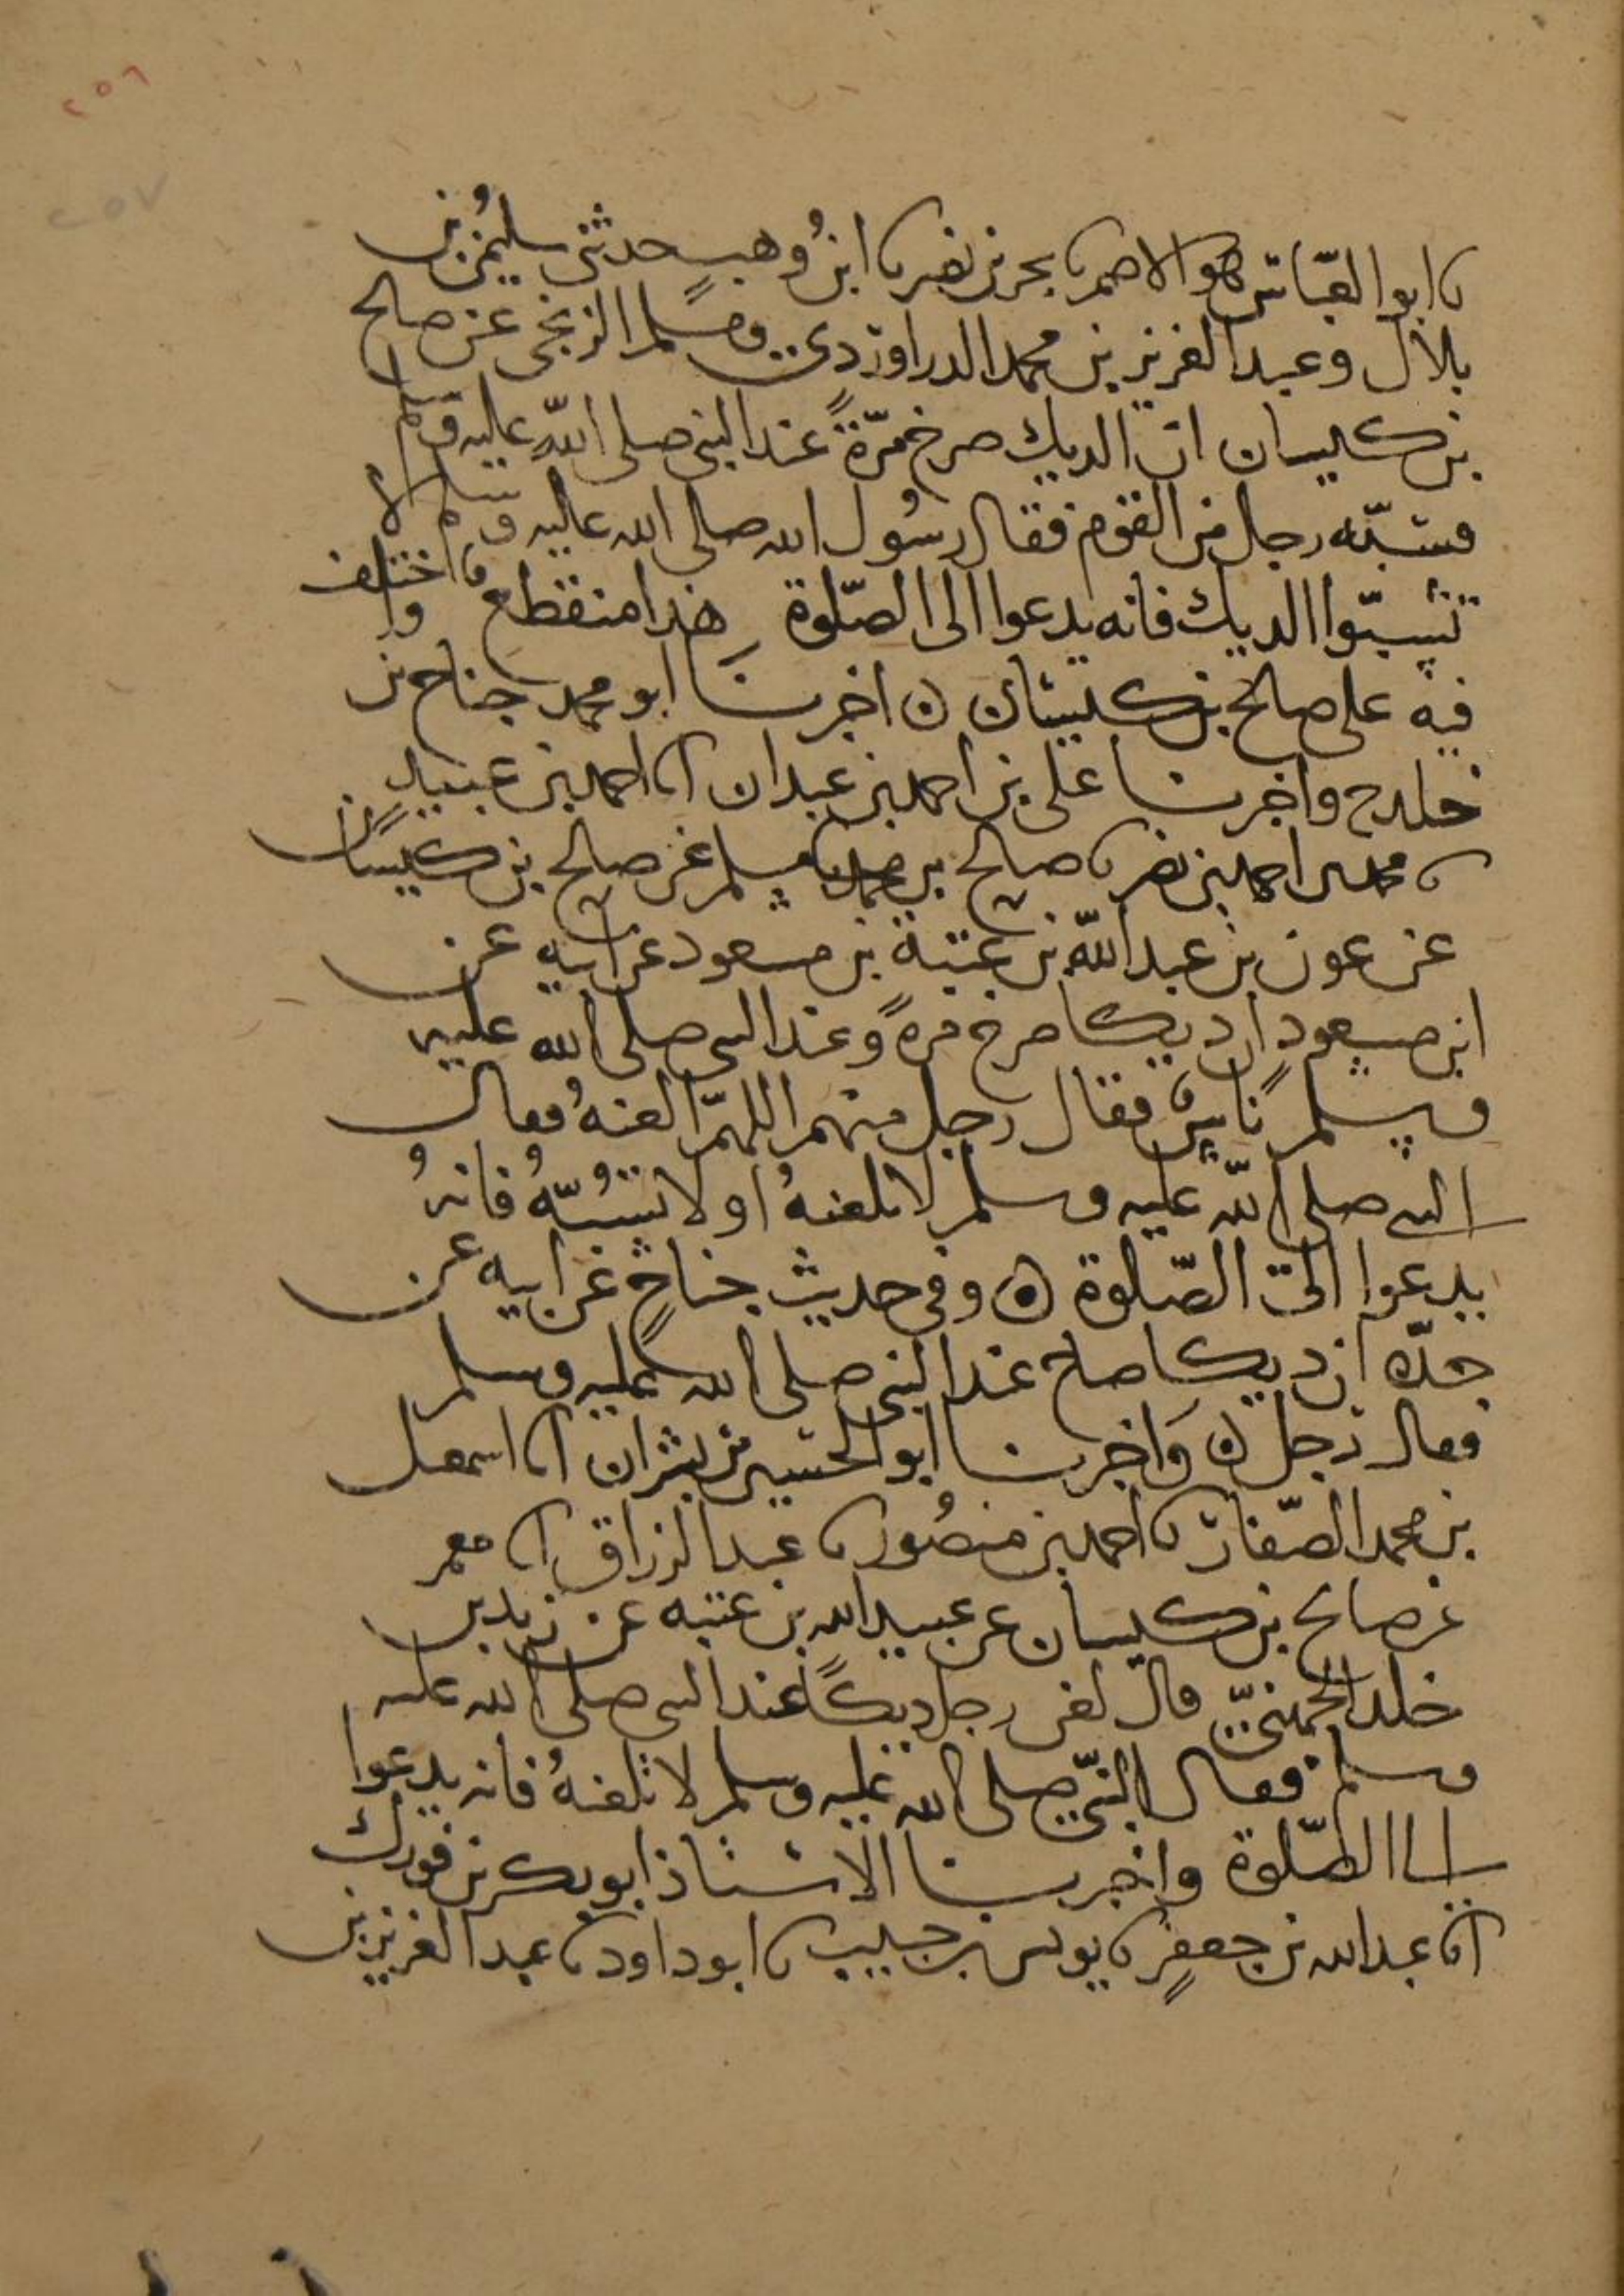 ٢٥٦
٢٥٧
نا ابو العباس هو الاصم نا بحر بن نصر نا ابنُ وهبٍ حدثني سليمٰن بن
بلال وعبد العزيز بن محمد الدراوردي ومسلم الزنجي عن صالح
بن كيسان ان الديك صرخ مرّةً عند النبي صلى الله عليه وسلم
فسبّه رجل من القوم فقال رسُول الله صلى الله عليه وسلم لا
تسبّوا الديك فانه يدعوا الى الصّلوة هذا منقطع واختلف
فيه على صالح بن كيسان ن اخبرنا ابو محمد جناح بن
خلد ح واخبرنا علي بن احمد بن عبدان انا احمد بن عبيد
نا احمد بن نصر نا صالح بن نا مسلم عن صالح بن كيسان
عن عون بن عبد الله بن عتبة بن مسعود عن ابيه عن
ابن مسعود ان ديكا صرخ مرةً وعند النبي صلى الله عليه
وسلم ناسٌ فقال رجل منهم اللهمّ العنهُ فقال
النبي صلى الله عليه وسلم لا تلعنهُ او لا تسُبّهُ فانهُ
يدعوا الى الصّلوة ه وفي حديث جناحٍ عن ابيه عن
جدّه ان ديكا صاح عند النبي صلى الله عليه وسلم
فقال رجل ن وَاخبرنا ابو الحسين بن بشران انا اسمعيل
بن محمد الصّفار نا احمد بن منصُور نا عبد الرزاق انا معمر
عن صالح بن كيسان عن عبيد الله بن عتبه عن زيد بن
خلد الجهنيّ قال لعن رجل ديكًا عند النبي صلى الله عليه
وسلم فقال النبيّ صلى الله عليه وسلم لا تلعنهُ فانه يدعوا
الى الصّلوة واخبرنا الاستاذ ابو بكر بن فورك
انا عبد الله بن جعفرٍ نا يونس بن حبيب نا ابو داود نا عبد العزيز بن